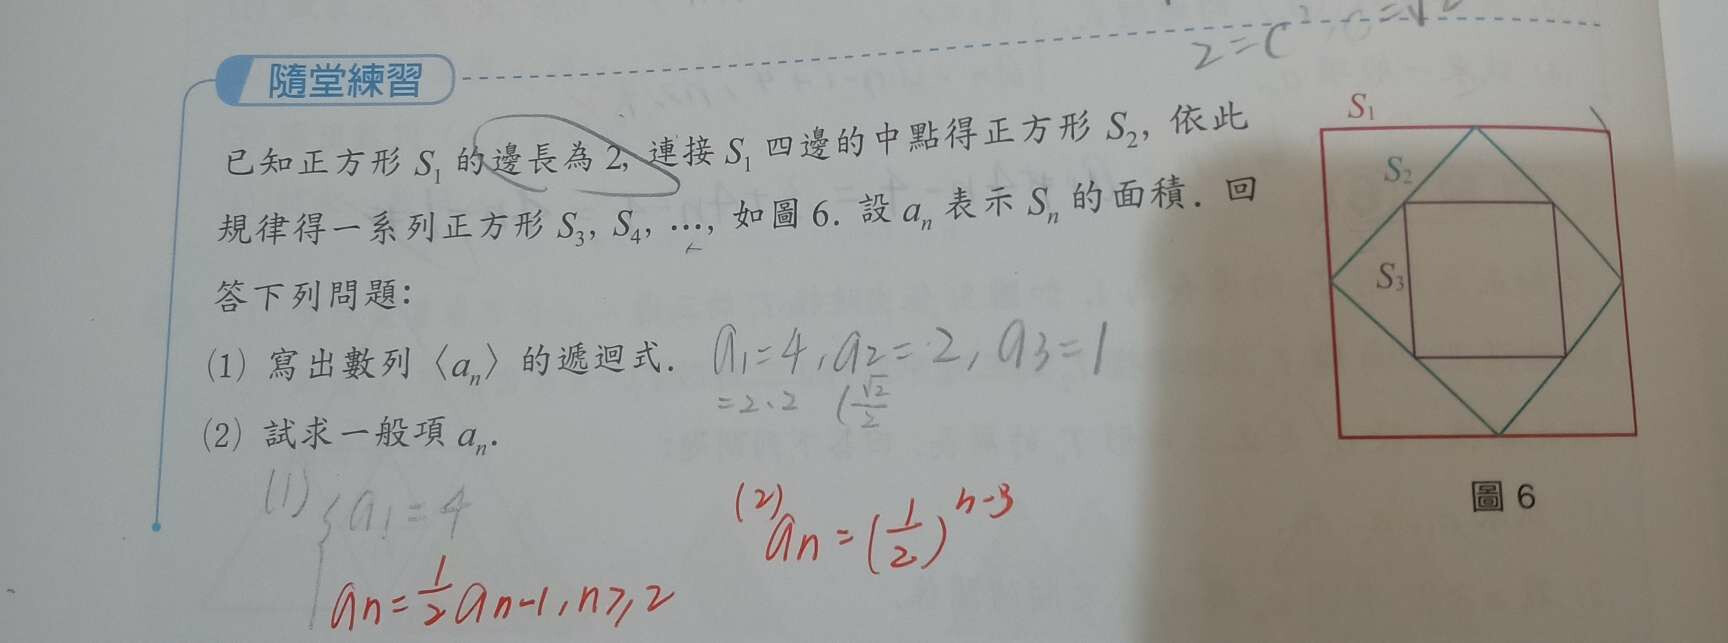 2=C², C=√2
隨堂練習
已知正方形 S₁ 的邊長為 2, 連接 S₁ 四邊的中點得正方形 S₂, 依此
規律得一系列正方形 S₃, S₄, …, 如圖 6. 設 aₙ 表示 Sₙ 的面積. 回
答下列問題:
(1) 寫出數列〈aₙ〉的遞迴式. a₁=4, a₂=2, a₃=1
=2·2 (√2/2
(2) 試求一般項 aₙ.
(1) { a₁=4
aₙ=1/2 aₙ₋₁, n≥2
(2) aₙ=(1/2)ⁿ⁻³
S₁
S₂
S₃
圖 6